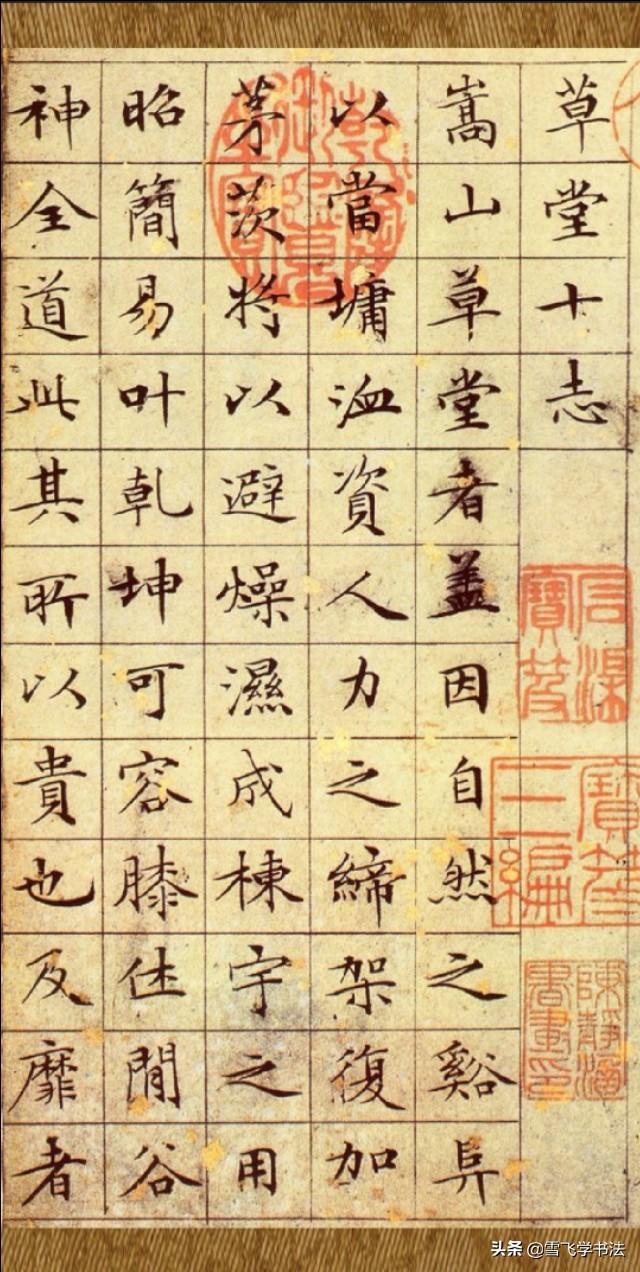 草堂十志
嵩山草堂者盖因自然之谿阜
以當墉洫資人力之締架復加
茅茨将以避燥濕成棟宇之用
昭簡易叶乾坤可容膝休閒谷
神全道此其所以貴也及靡者
乾隆御覽之寶
石渠寶笈
寶笈三編
头条 @雪飞学书法